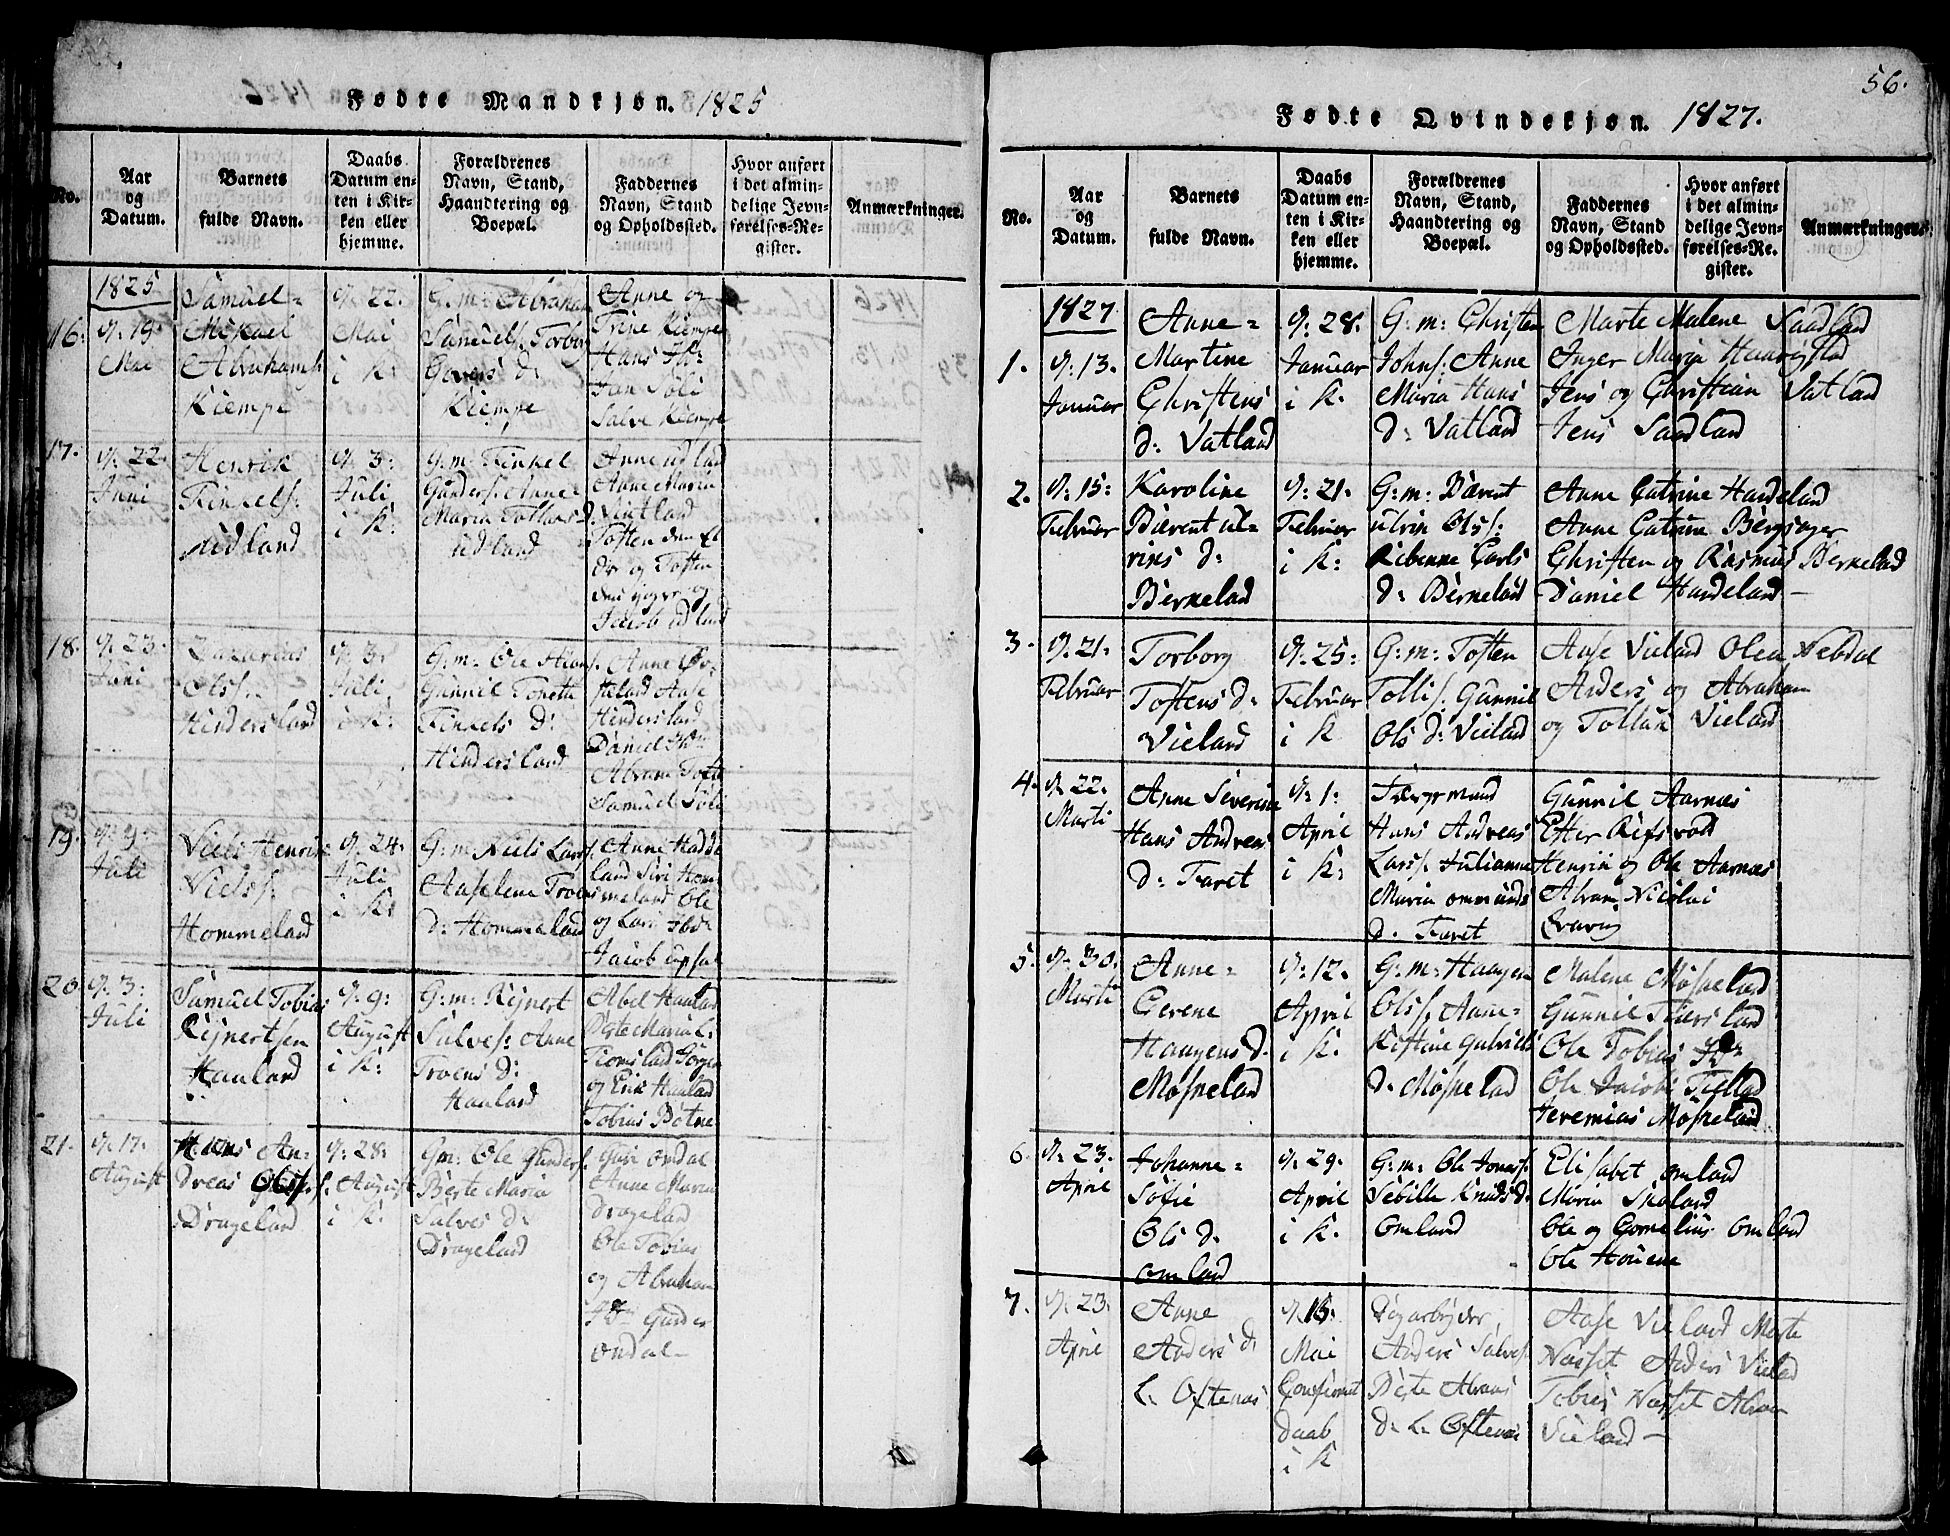 Fødte Mandkjøn. 1825
No.
Aar
og
Datum.
Barnets
fulde Navn.
Daabs
Datum en-
ten i Kir-
ken eller
hjemme.
Forældrenes
Navn, Stand,
Haandtering og
Boepæl.
Faddernes
Navn, Stand
og Opholdssted.
Hvor anført
i det almin-
delige Jevn-
førelses-Re-
gister.
Anmærkninger.
1825
16.
d. 19
Mai
Samuel
Mikael
Abrahams
Kiempe
d. 22.
Mai
i K.
G: m: Abraham
Samuels. Torbor
D:
Kiempe
Anne og
Trine Kiempe
Hans
Jan Soli
Salve Kiempe
17.
d. 22
Juni
Henrik
Tinkels.
Udland
d. 3.
Juli
i K.
G: m: Tinkel
Gunders. Anne
Maria D.
Udland
Anne Udland
Anne Maria
Vatland
Tosten den El
dr og Tosten
den yngr og
Jacob Udland
18.
d. 23.
Juni
Zakarias
Olss.
Hindersland
d. 3.
Juli
i K.
G: m: Ole Hans
Gunnil Tonette
Tinkels D:
Hindersland
Anne
Aase
Hindersland
Daniel
Abram
Samuel Soli
19.
d. 9.
Juli
Niels Henrik
Nielss.
Hommeland
d. 24.
Juli
i K.
G: m: Niels Larss.
Aaselene Troens
D: Hommeland
Anne Hadde
land Siri Hom
meland Ole
og Lars
Jacob
20.
d. 3.
Juli
Samuel Tobias
Rejnertsen
Hauland
d. 9.
August
i K.
G: m: Rejnert
Salves: Anne
Troens D:
Hauland
Abel Hauland
Berte Maria
og Erik Hauland
Tobias Botne
21.
d. 17.
August
Hans An-
dreas Olss.
Drageland
d. 28.
August
i K.
Gm: Ole Gunders.
Berte Maria
Salves D:
Drageland
Guri Omdal
Anne Maria
Drageland
Ole Tobias
og Abraham
Gunder
Omdal
56.
Fødte Qvindekjøn. 1827.
No.
Aar
og
Datum.
Barnets
fulde Navn.
Daabs
Datum en-
ten i Kir-
ken eller
hjemme.
Forældrenes
Navn, Stand,
Haandtering og
Boepæl.
Faddernes
Navn, Stand
og Opholdssted.
Hvor anført
i det almin-
delige Jevn-
førelses-Re-
gister.
Anmærkninger.
1827
1.
d. 13.
Januar
Anne
Martine
Christens
D: Vatland
d. 28.
Januar
i K.
G: m: Christen
Johns. Anne
Maria Hans
D: Vatland
Marte Malene Saadland
Inger Maria
Jens og Christian Vatland
Jens Saadland
2.
d. 15.
Februar
Karoline
Bærent ul-
rins D:
Berneland
d. 21.
Februar
i K:
G: m: Bærent
ulrin Olss:
Rebenne Carls
D: Berneland
Anne Catrine Hardeland
Anne Catrine
Christen og Rasmus Berneland
Daniel Hardeland
3.
d. 21.
Februar
Torborg
Tostens D.
Vieland
d. 25:
Februar
i K
G: m: Tosten
Tollis. Gunnil
Ols D: Vieland
Aase Vieland Olea
Anders og Abraham
og Tollak Vieland
4.
d. 22.
Marti
Anne Severine
Hans Andreas
D: Faret
d. 1:
April
i K:
Hans Andreas
Larss. Julianne
Maria
D: Faret
Gunnil Aarnæs
Henrik og Ole Aarnæs
Abram Nicolai
5.
d. 30.
Marti
Anne-
Gerene
Haagens D.
Mosneland
d. 12.
April
i K.
G: m: Haagen
Olss. Anne-
Kistine Gabriels
D: Mosneland
Malene Mosneland
Gunnil
Ole Tobias
Ole Jacob
Jeremias Mosneland
6.
d. 23.
April
Johanne-
Sofie
Ols D.
Omland
d. 29.
April
i K.
G: m: Ole Jonas.
Sebille Knuds D.
Omland
Elisabet Omland
Maria
Ole og Cornelius Omland
Ole
7.
d. 23.
April
Anne
Anders D.
L. Oftenæs
Mai
daab
i K
Anders Salves.
Berte Abrams
D: L. Oftenæs
Aase Vieland Marte
Nosset Anders Vieland
Tobias Nosset
Vieland